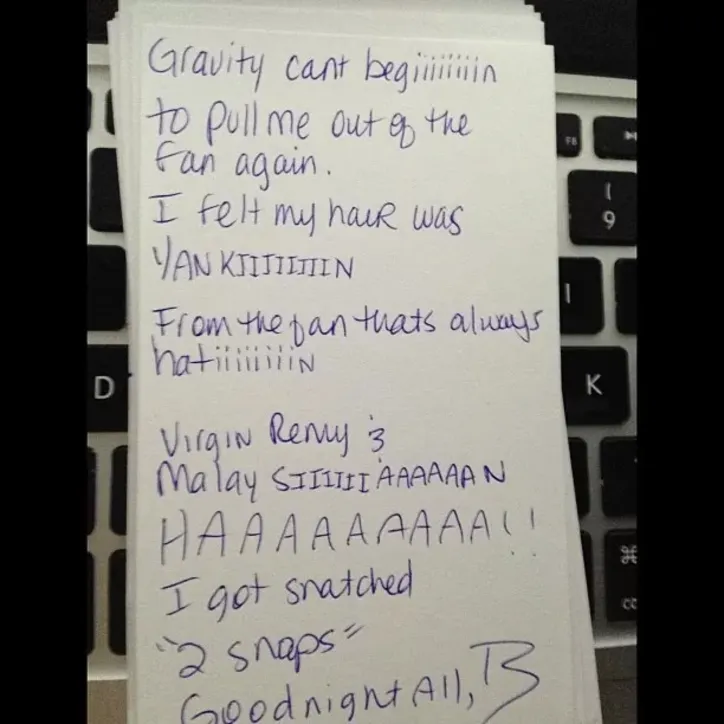 Gravity cant begiiiiiiiin
to pull me out of the
fan again.
I felt my haiR was
YANKIIIIIIIIN
From the fan thats always
hatiiiiiiiiiN
Virgin Remy &
Malay SIIIIIIAAAAAAN
HAAAAAAAAA!!
I got snatched
"2 snaps"
Goodnight All, B
F8
(
9
I
D
K
⌘